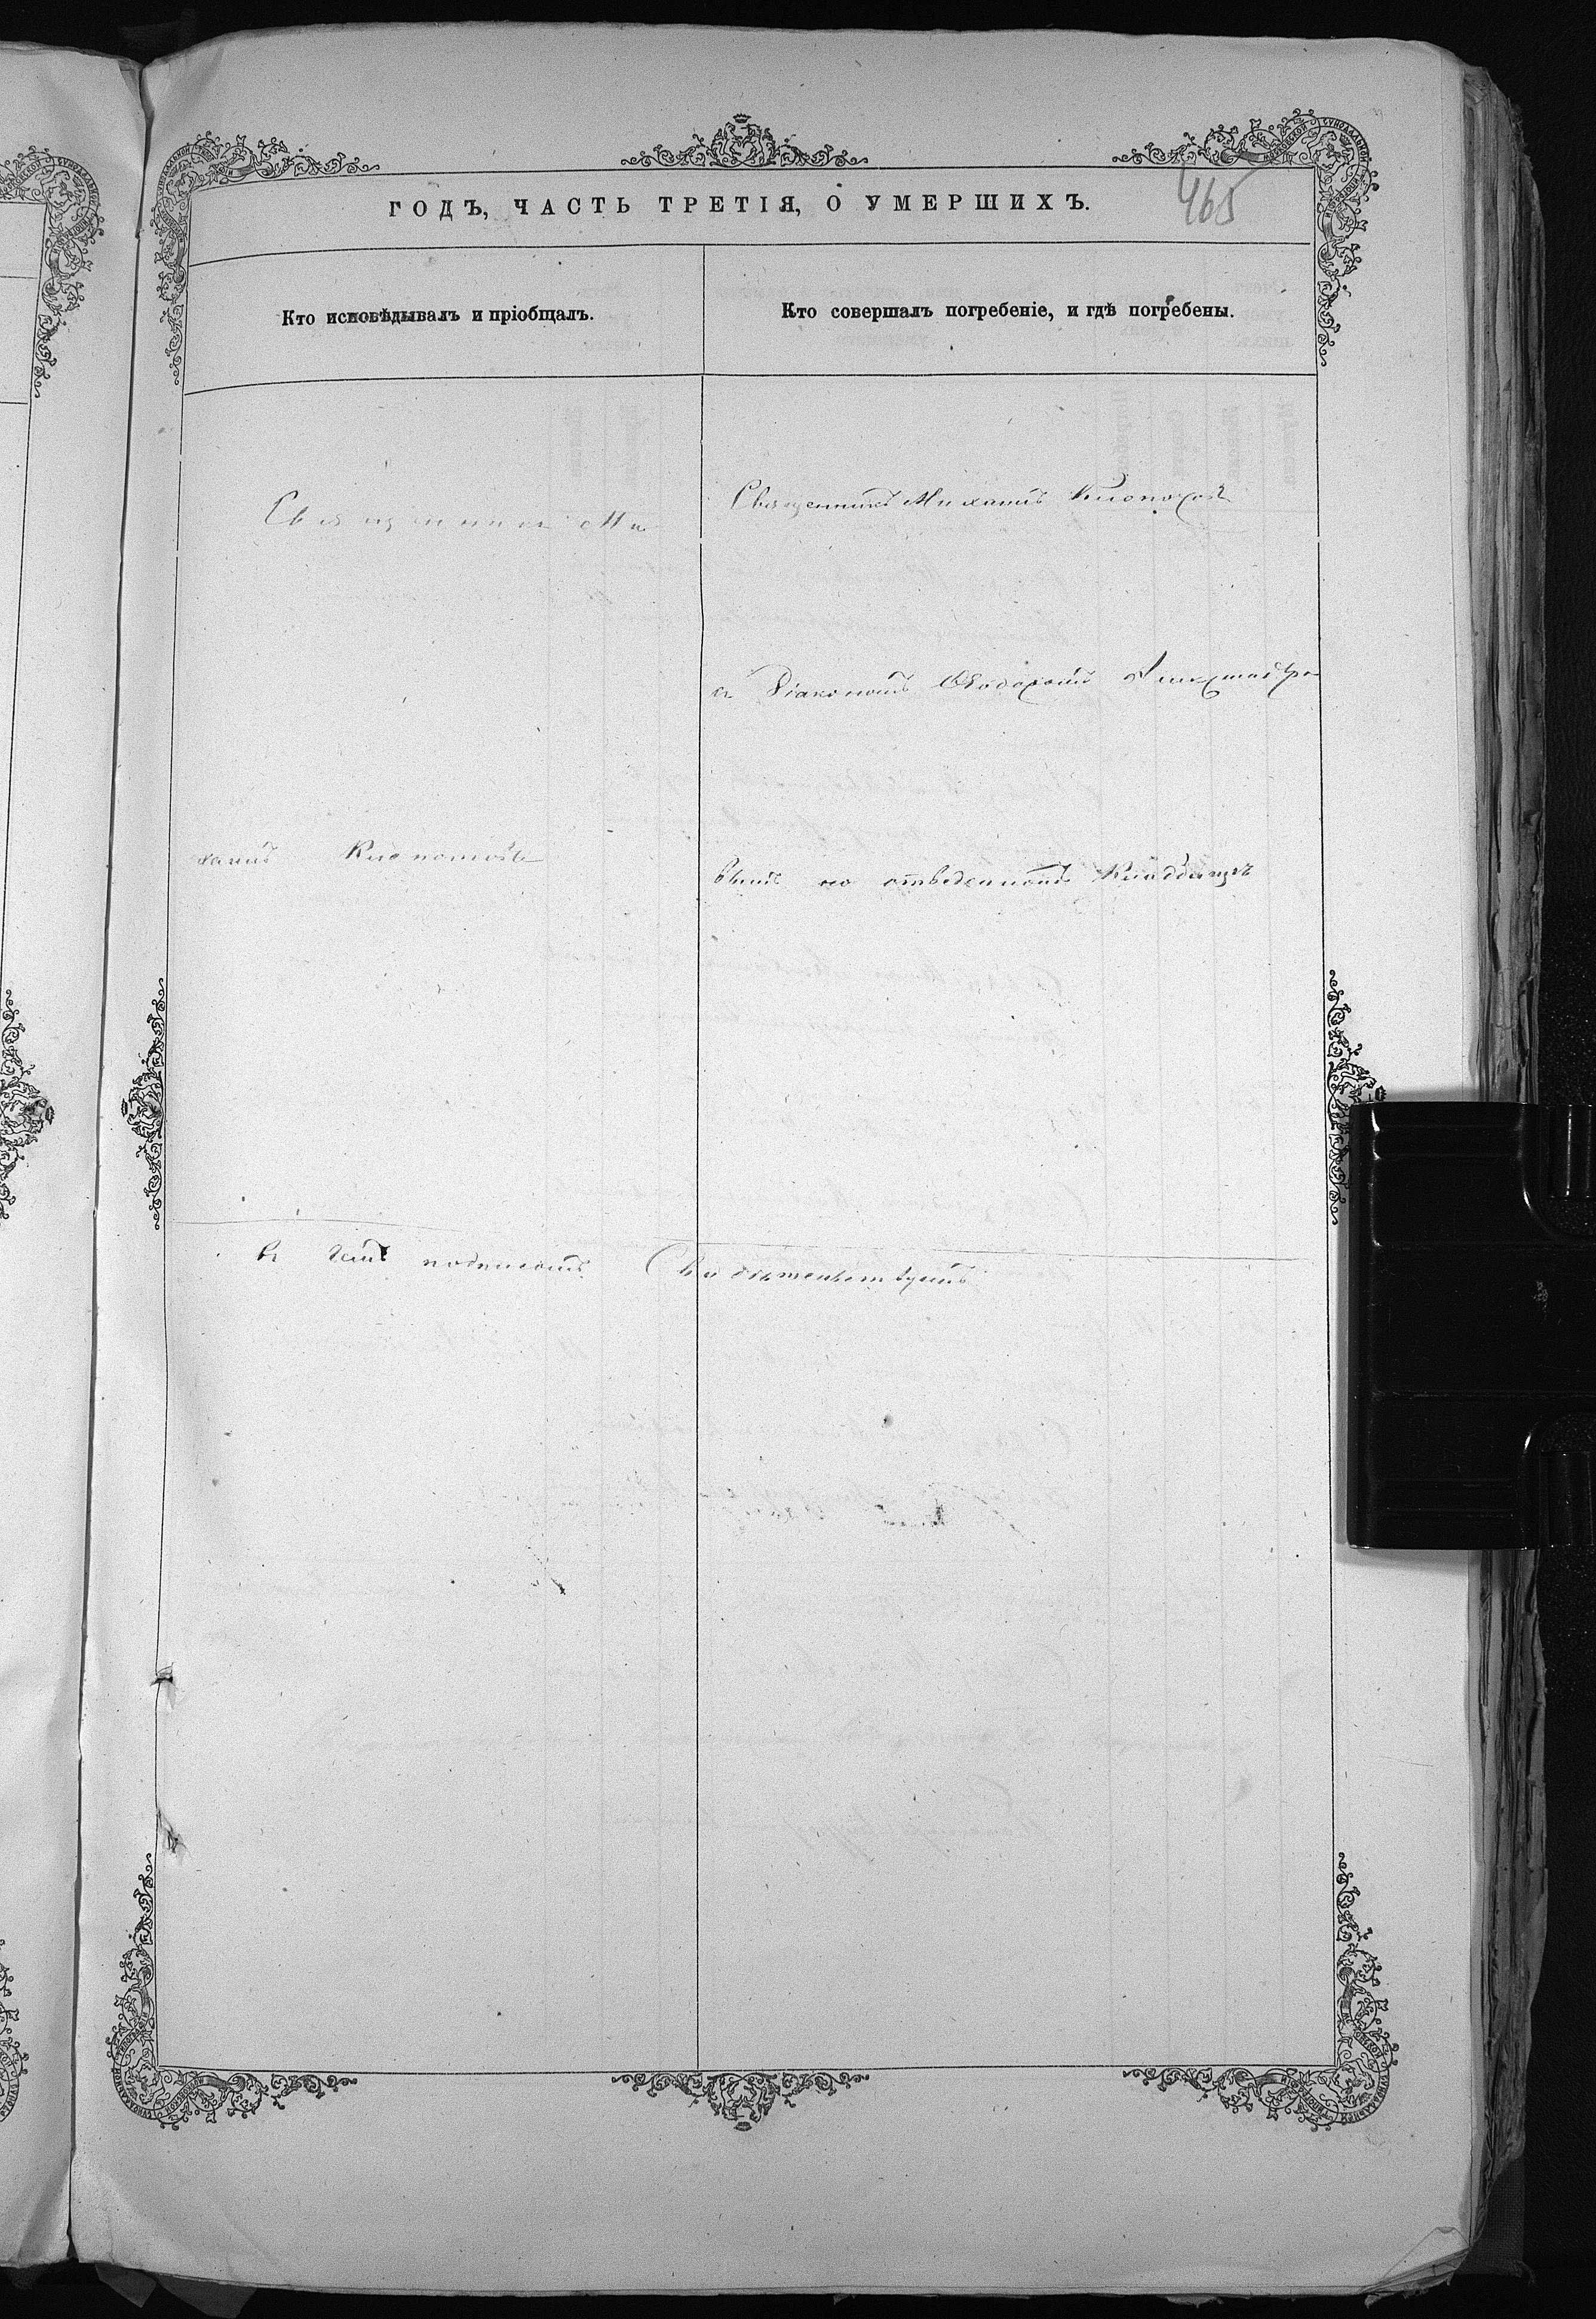 ГОДЪ, ЧАСТЬ ТРЕТІЯ, О УМЕРШИХЪ.
465
Кто исповѣдывалъ и пріобщалъ.
Кто совершалъ погребеніе, и гдѣ погребены.
Священникъ Ми
хаилъ
Священникъ Михаилъ
съ Діакономъ Ѳеодоромъ Александро
вымъ на отведенномъ кладбищѣ
въ чемъ подписомъ Свидѣтельствуемъ